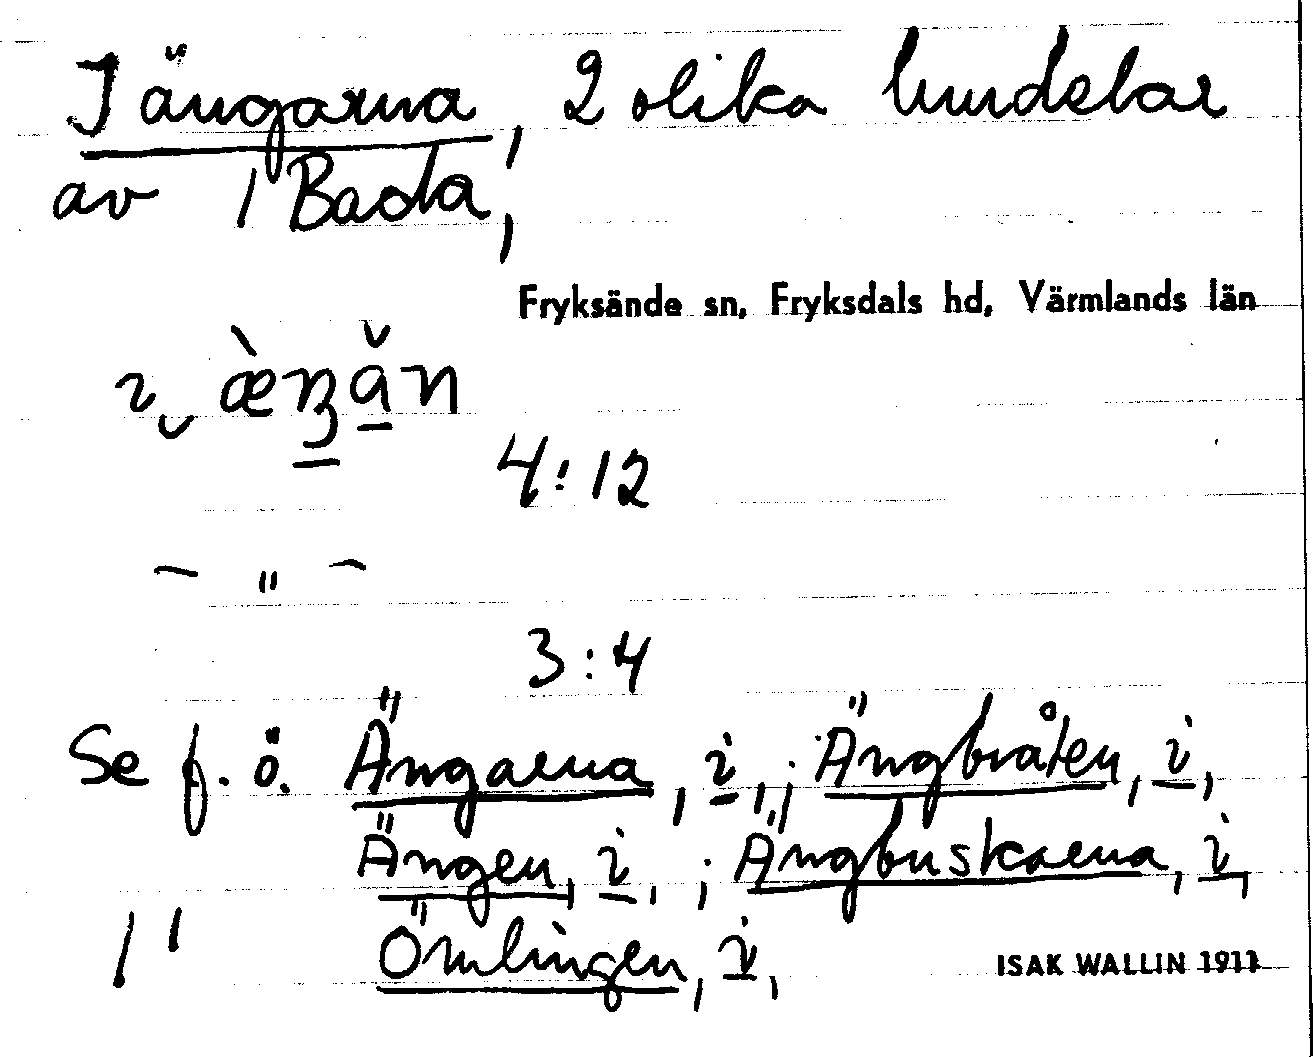 I ängarna, 2 olika hundelar
av 1 Bada,
Fryksände sn, Fryksdals hd, Värmlands län
4:12
— " —
3:4
Se f. ö. Ängarna, i,; Ängbråten, i,
Ängen, i,; Ängbuskarna, i,
Ömlingen, i,
ISAK WALLIN 1911